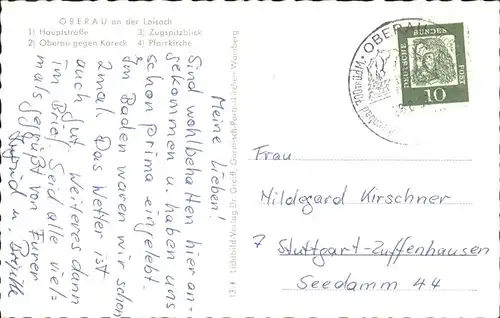 OBERAU an der Loisach
1) Hauptstraße 3) Zugspitzblick
2) Oberau gegen Kareck 4) Pfarrkirche
Meine Lieben!
Sind wohlbehalten hier an-
gekommen u. haben uns
schon prima eingelebt.
Im Baden waren wir schon
2 mal. Das Wetter ist
auch gut. Weiteres dann
im Brief. Seid alle viel-
mals gegrüßt von Eurer
Ingrid u. Brigitte
Lichtbild-Verlag Dr. Greiff, Garmisch-Partenkirchen-Wamberg
OBERAU
DEUTSCHE BUNDESPOST
10
Frau
Hildegard Kirschner
7 Stuttgart-Zuffenhausen
Seedamm 44